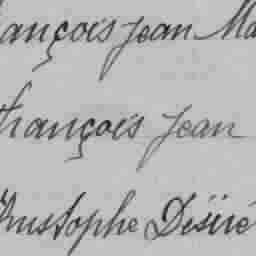 ançois Jean Ma
françois Jean
hristophe Désiré